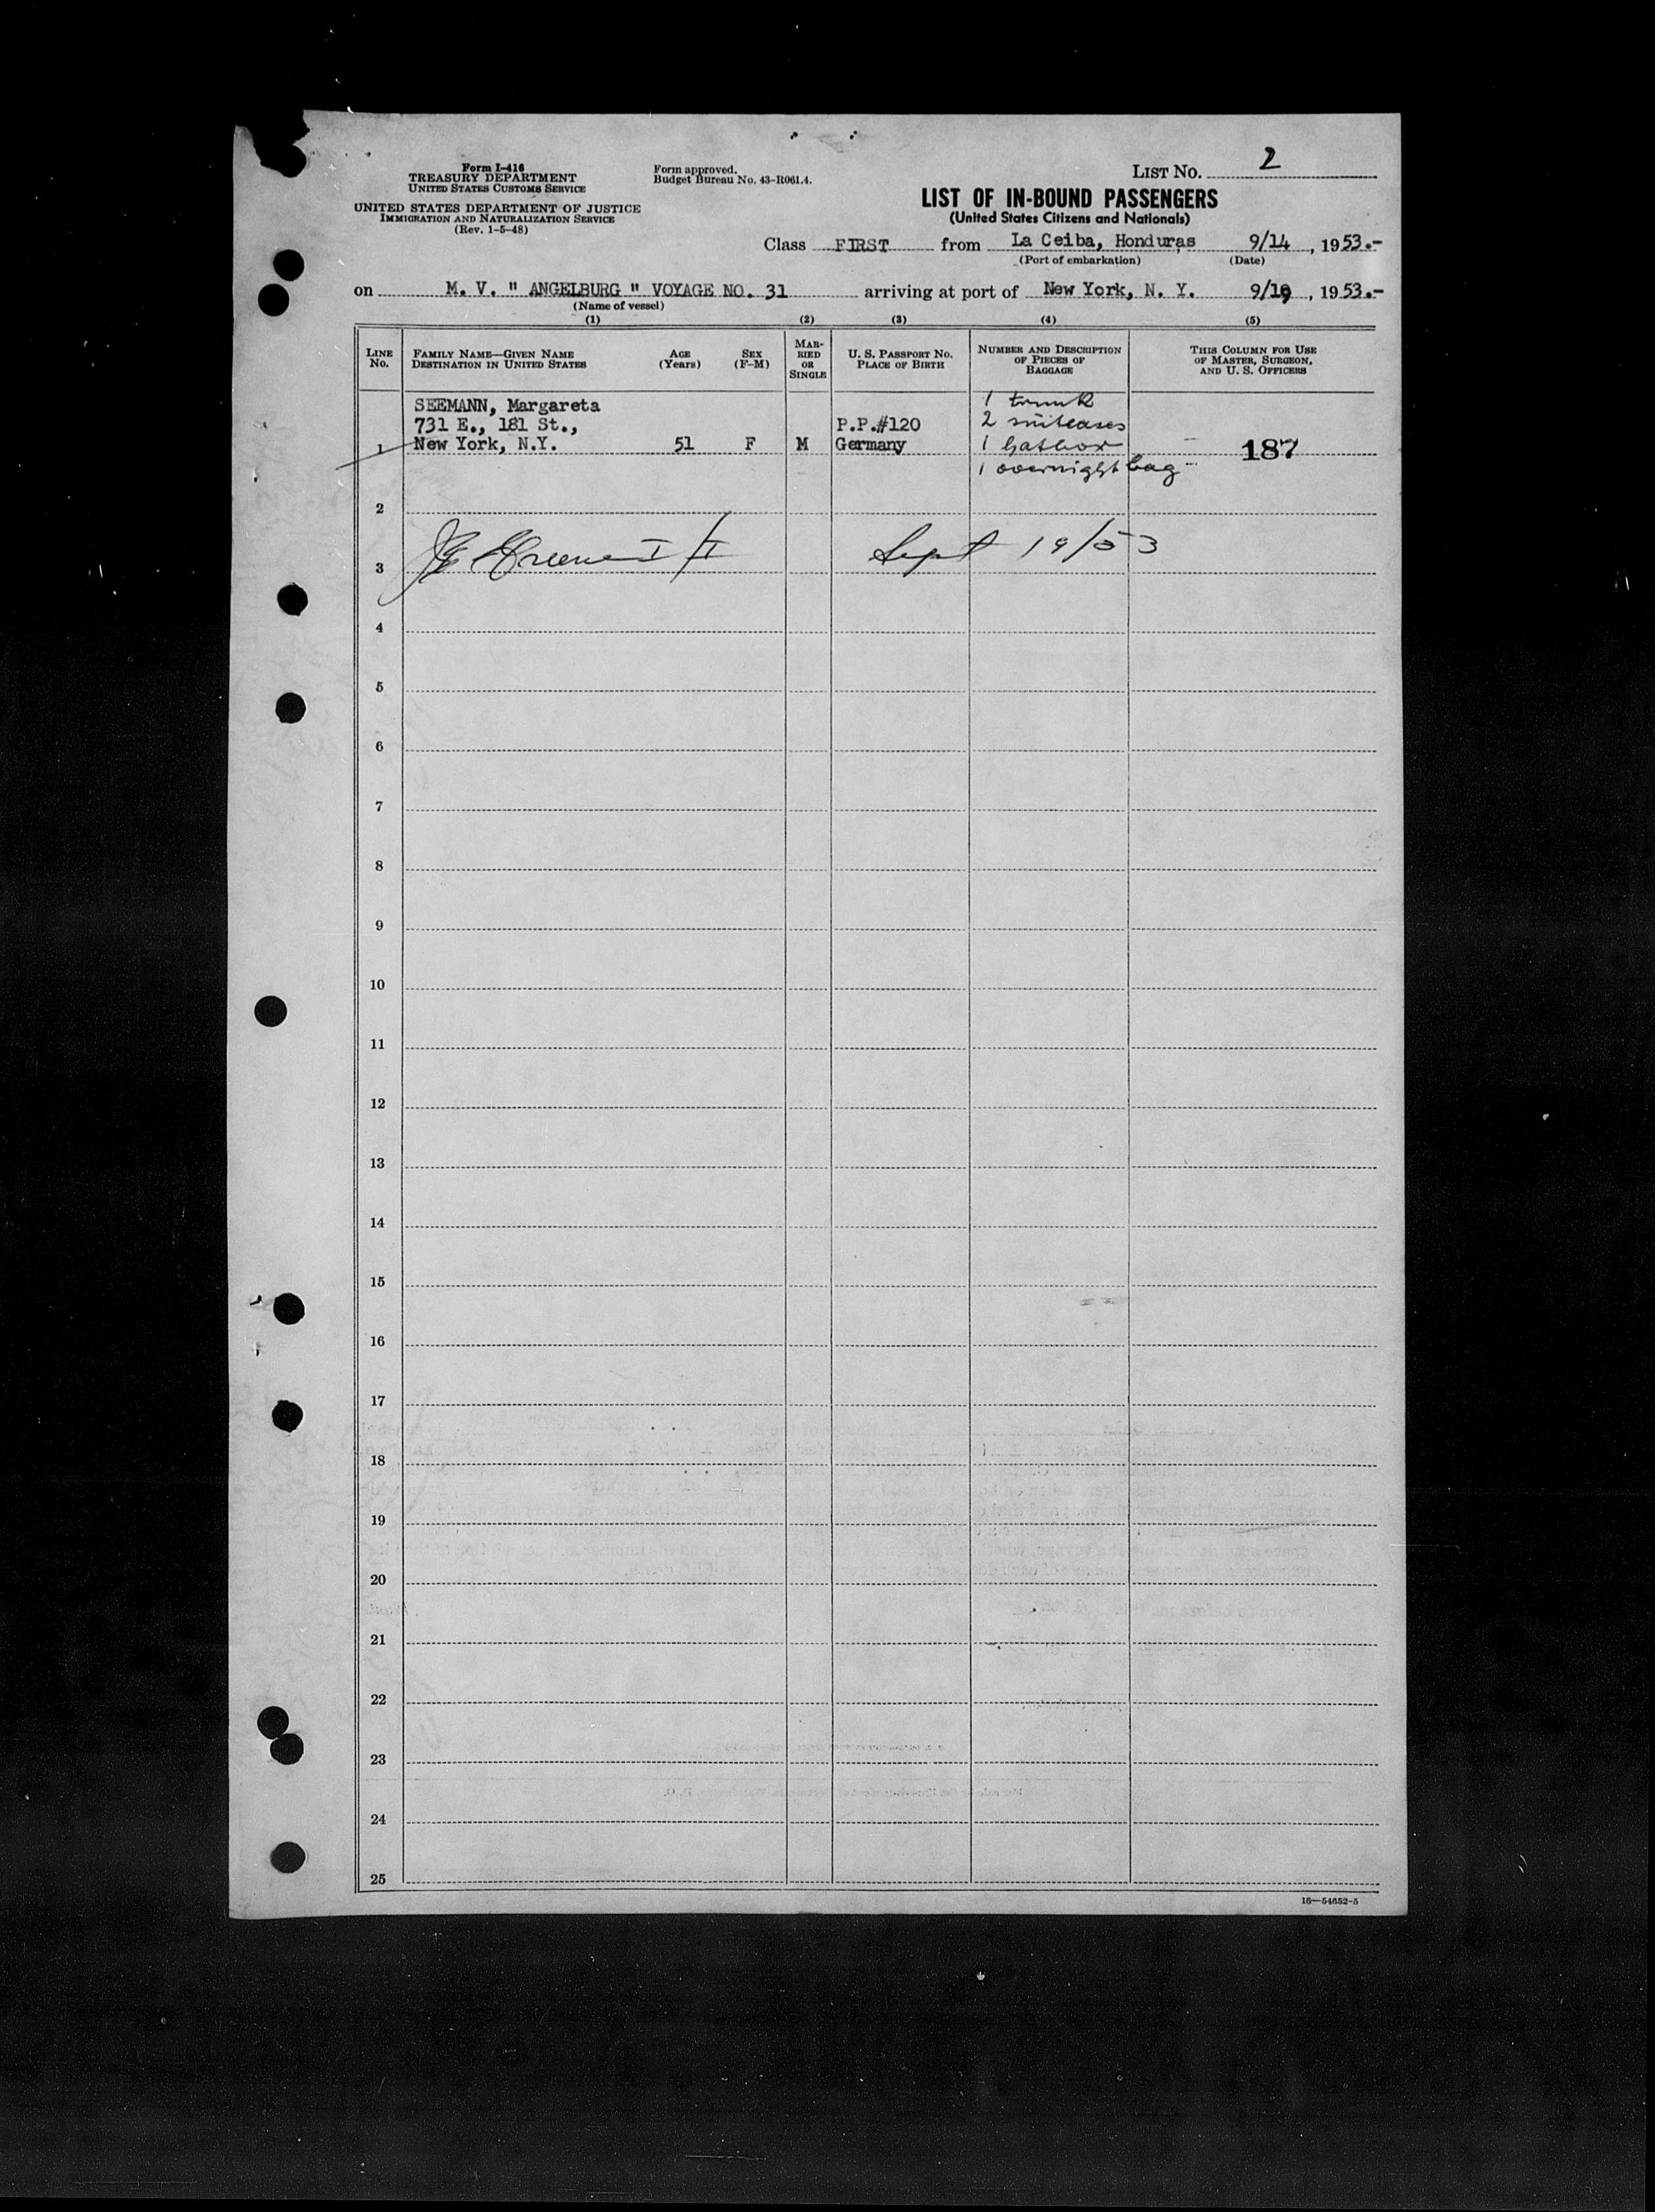 Form I-416
TREASURY DEPARTMENT
UNITED STATES CUSTOMS SERVICE
UNITED STATES DEPARTMENT OF JUSTICE
IMMIGRATION AND NATURALIZATION SERVICE
(Rev. 1-5-48)
Form approved.
Budget Bureau No. 43-R061.4.
LIST No. 2
LIST OF IN-BOUND PASSENGERS
(United States Citizens and Nationals)
Class FIRST from La Ceiba, Honduras 9/14, 1953.-
(Port of embarkation) (Date)
on M. V. " ANGELBURG " VOYAGE NO. 31 arriving at port of New York, N. Y. 9/19, 1953.-
(Name of vessel)
(1) (2) (3) (4) (5)
LINE No.
FAMILY NAME—GIVEN NAME
DESTINATION IN UNITED STATES
AGE (Years)
SEX (F-M)
MARRIED OR SINGLE
U. S. PASSPORT No.
PLACE OF BIRTH
NUMBER AND DESCRIPTION
OF PIECES OF
BAGGAGE
THIS COLUMN FOR USE
OF MASTER, SURGEON,
AND U. S. OFFICERS
SEEMANN, Margareta 1 trunk
731 E., 181 St., P.P.#120 2 suitcases
1 New York, N.Y. 51 F M Germany 1 hatbox 187
1 overnight bag
2
3 Sept 19/53
4
5
6
7
8
9
10
11
12
13
14
15
16
17
18
19
20
21
22
23
24
25
16—54652-5